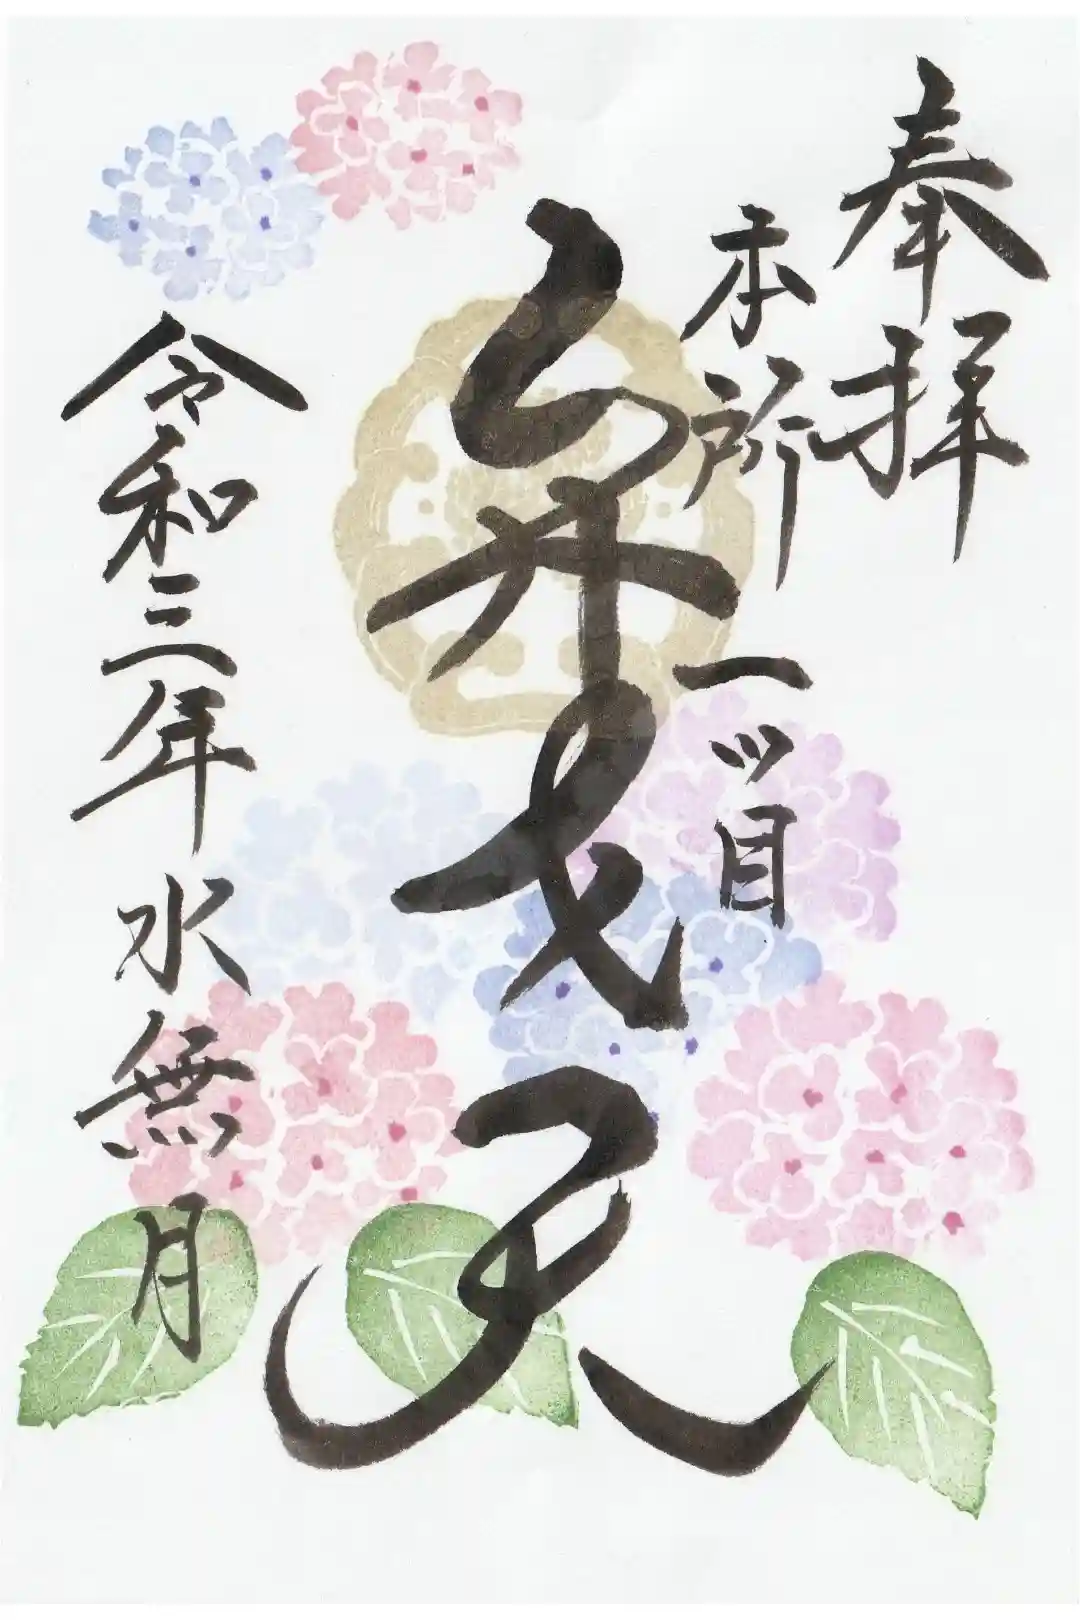 奉拝
本所
一ツ目
弁才天
令和三年水無月